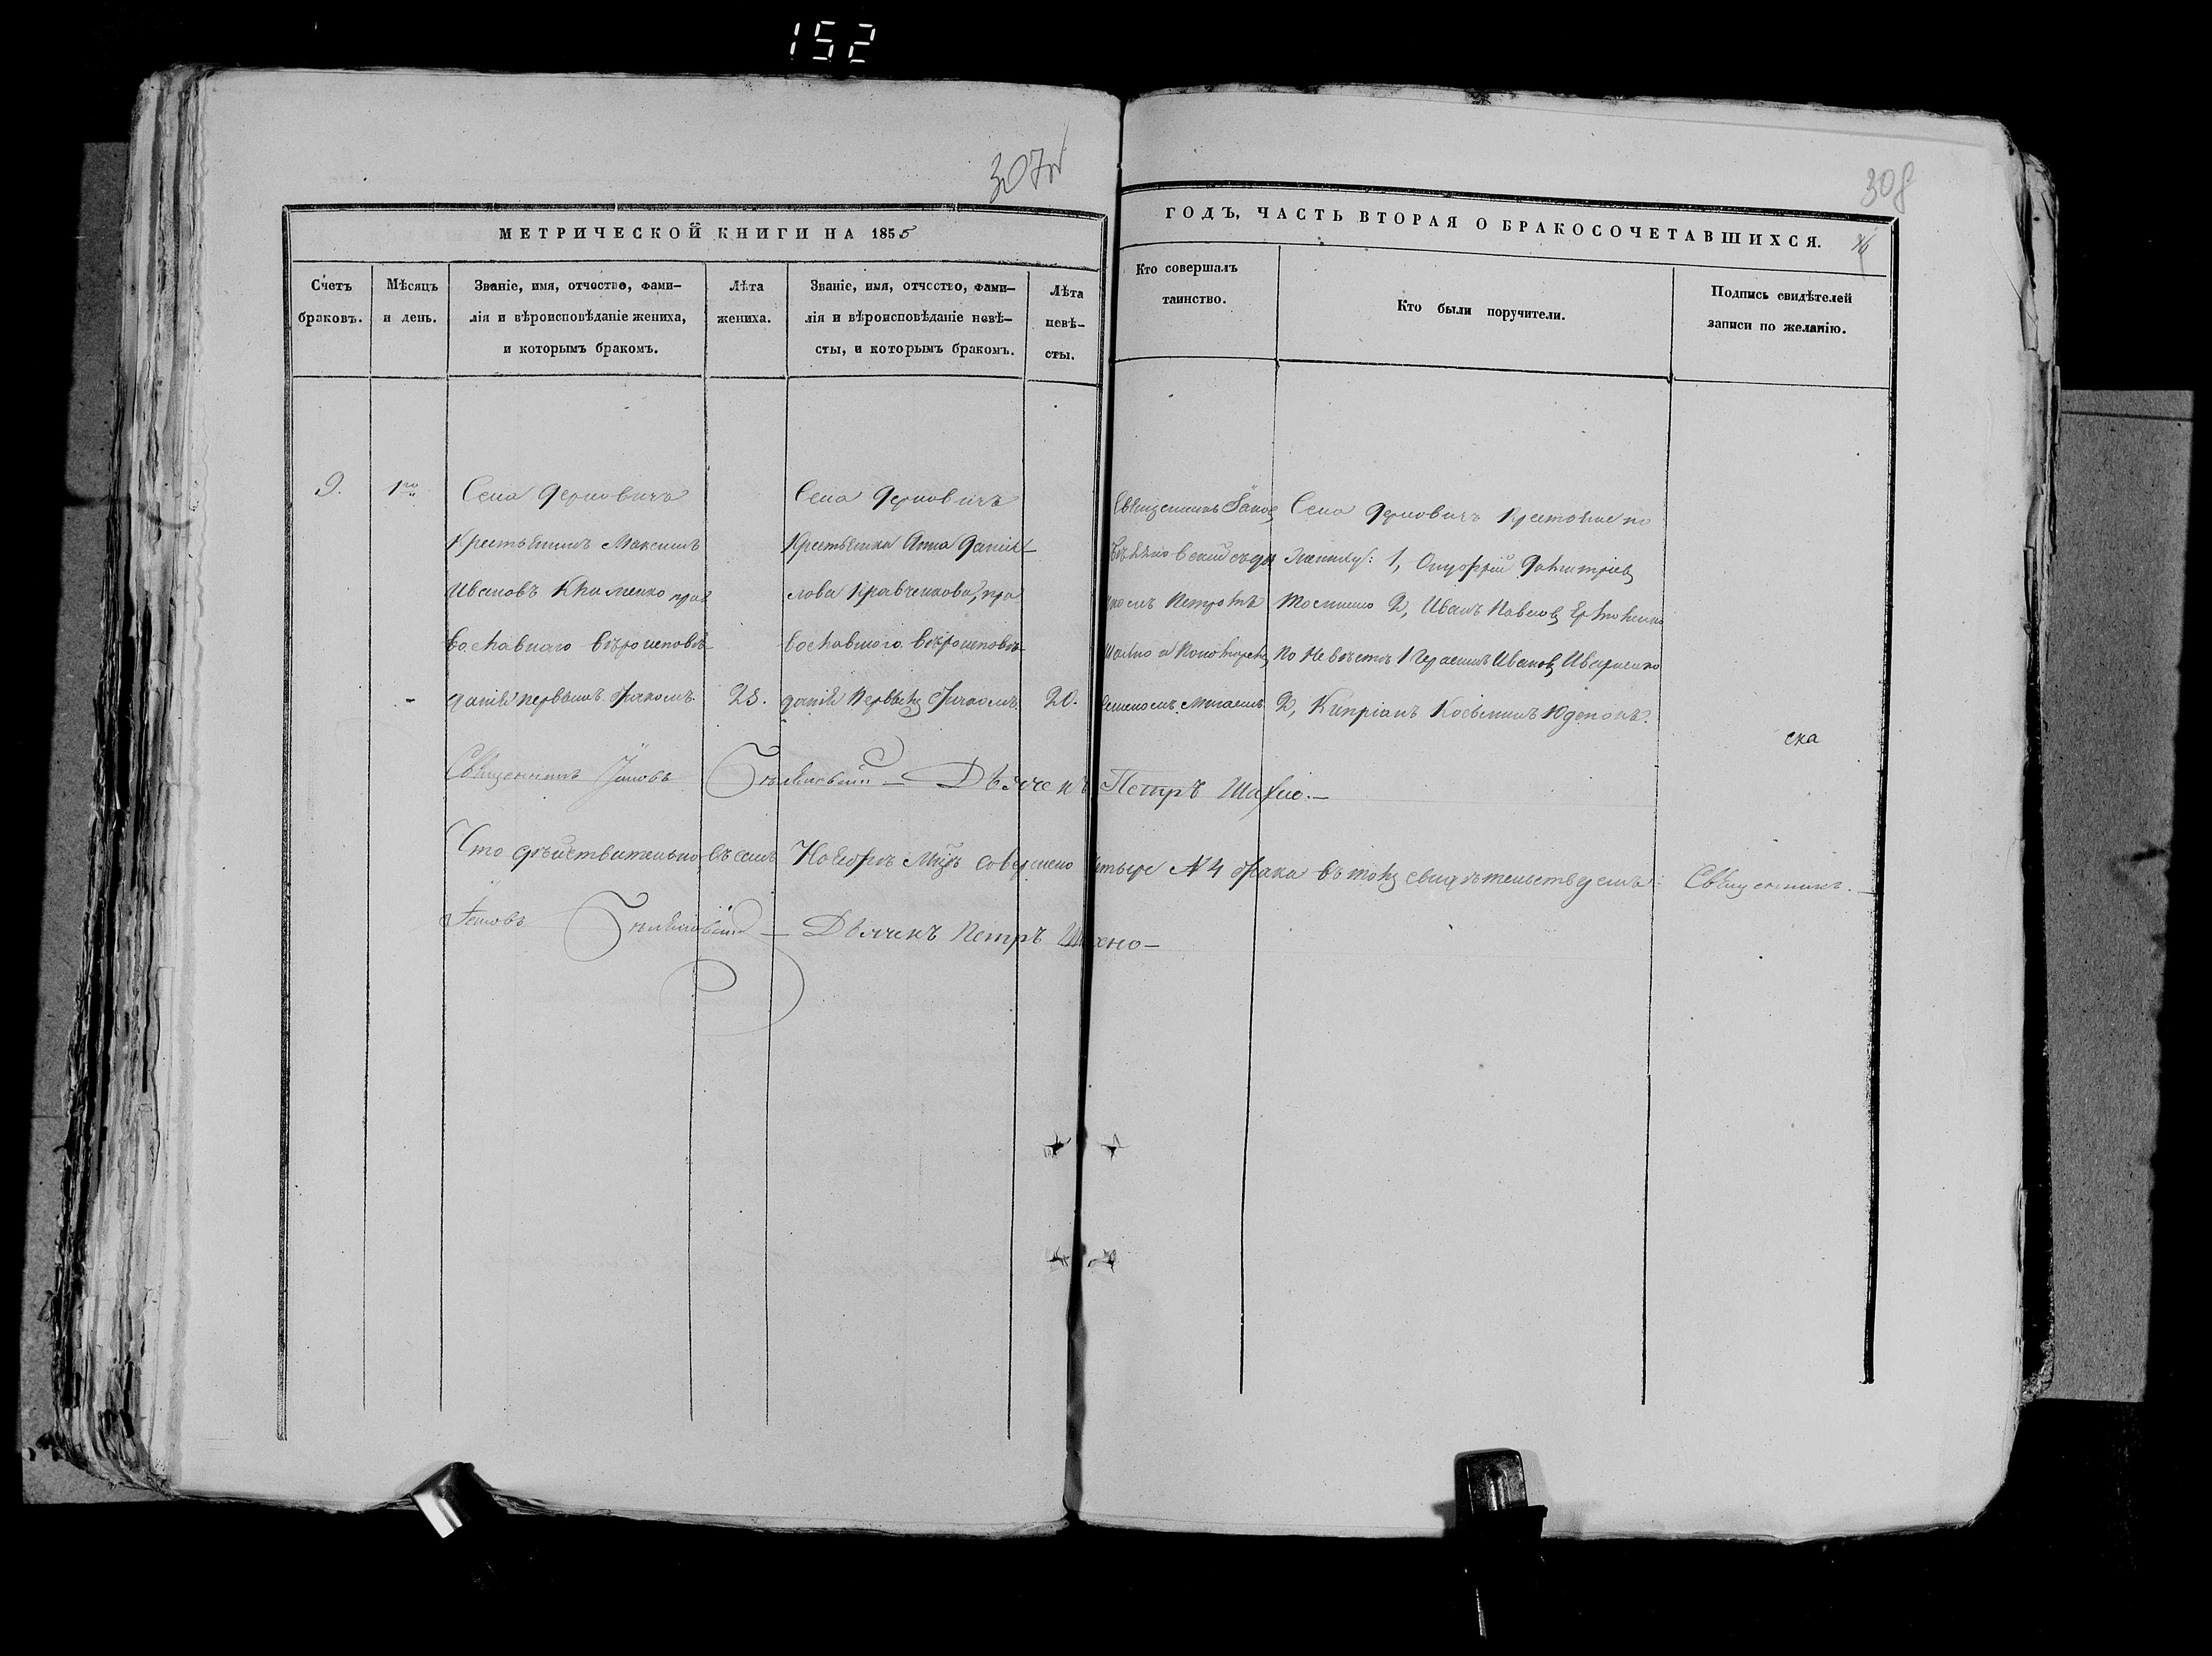 152
307об
308
МЕТРИЧЕСКОЙ КНИГИ НА 1855
ГОДЪ, ЧАСТЬ ВТОРАЯ О БРАКОСОЧЕТАВШИХСЯ.
Счетъ
браковъ.
Мѣсяцъ
и день.
Званіе, имя, отчество, фами-
лія и вѣроисповѣданіе жениха,
и которымъ бракомъ.
Лѣта
жениха.
Званіе, имя, отчество, фами-
лія и вѣроисповѣданіе невѣ-
сты, и которымъ бракомъ.
Лѣта
невѣ-
сты.
Кто совершалъ
таинство.
Кто были поручители.
Подпись свидѣтелей
записи по желанію.
9.
1го
Села Дерновичъ
Крестьянинъ Максимъ
Ивановъ Клименко прав
вославнаго вѣроисповѣ-
данія первымъ бракомъ
23.
Села Дерновичъ
Крестьянка Анна Даніи-
лова Кравченкова, пра
вославнаго вѣроисповѣ-
данія первымъ бракомъ
20.
Священникъ Іаковъ
съ дья
Петромъ
Шахно и Пономаремъ
Села Дерновичъ Крестьяне по
Женихѣ: 1, Онуфрій Димитріевъ
2, Иванъ Павловъ
по Невѣстѣ 1 Герасимъ Ивановъ
2, Кипріанъ Косьминъ
Священникъ Іаковъ
Дьячекъ Петръ Шахно.—
ска
Что дѣйствительно въ семъ Ноябрѣ Мцѣ совершено четыре № 4 брака въ томъ свидѣтельствуемъ: Священникъ.
Іаковъ
Дьячекъ Петръ Шахно—